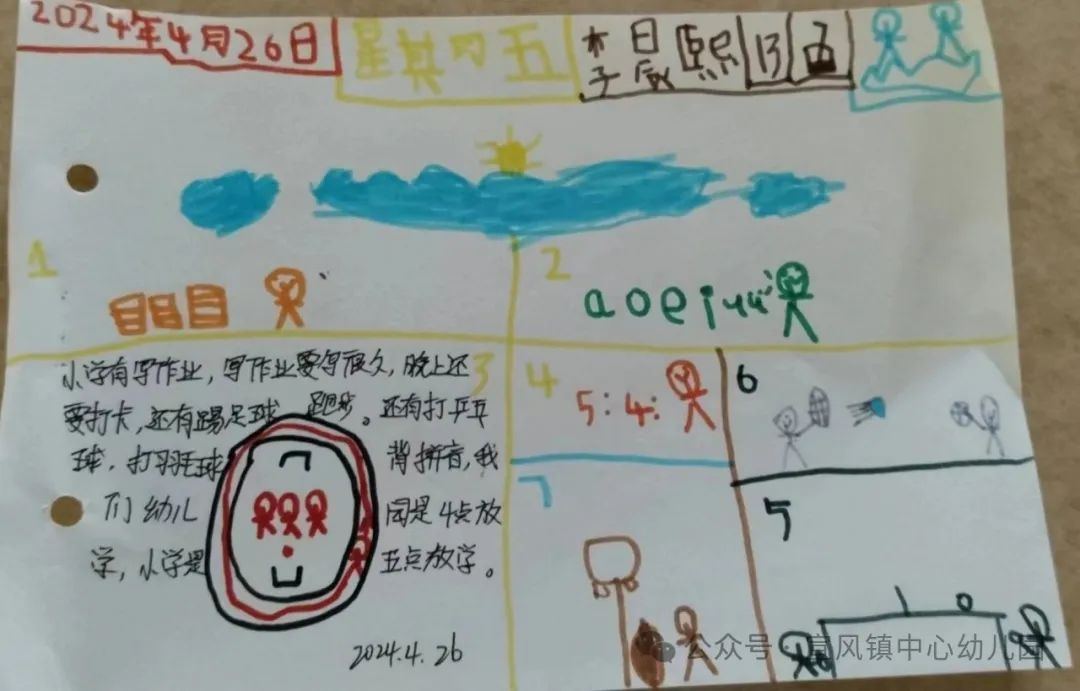 2024年4月26日 星期五 李晨熙 13
1
2
a o e i u ü
小学有写作业，写作业要写很久，晚上还
要打卡，还有踢足球 跑步。还有打乒乓
球，打羽毛球 背拼音，我
们幼儿 园是4点放
学，小学是 五点放学。
2024.4.26
3
4
5:4:
6
7
5
1 0
公众号 · 宣风镇中心幼儿园